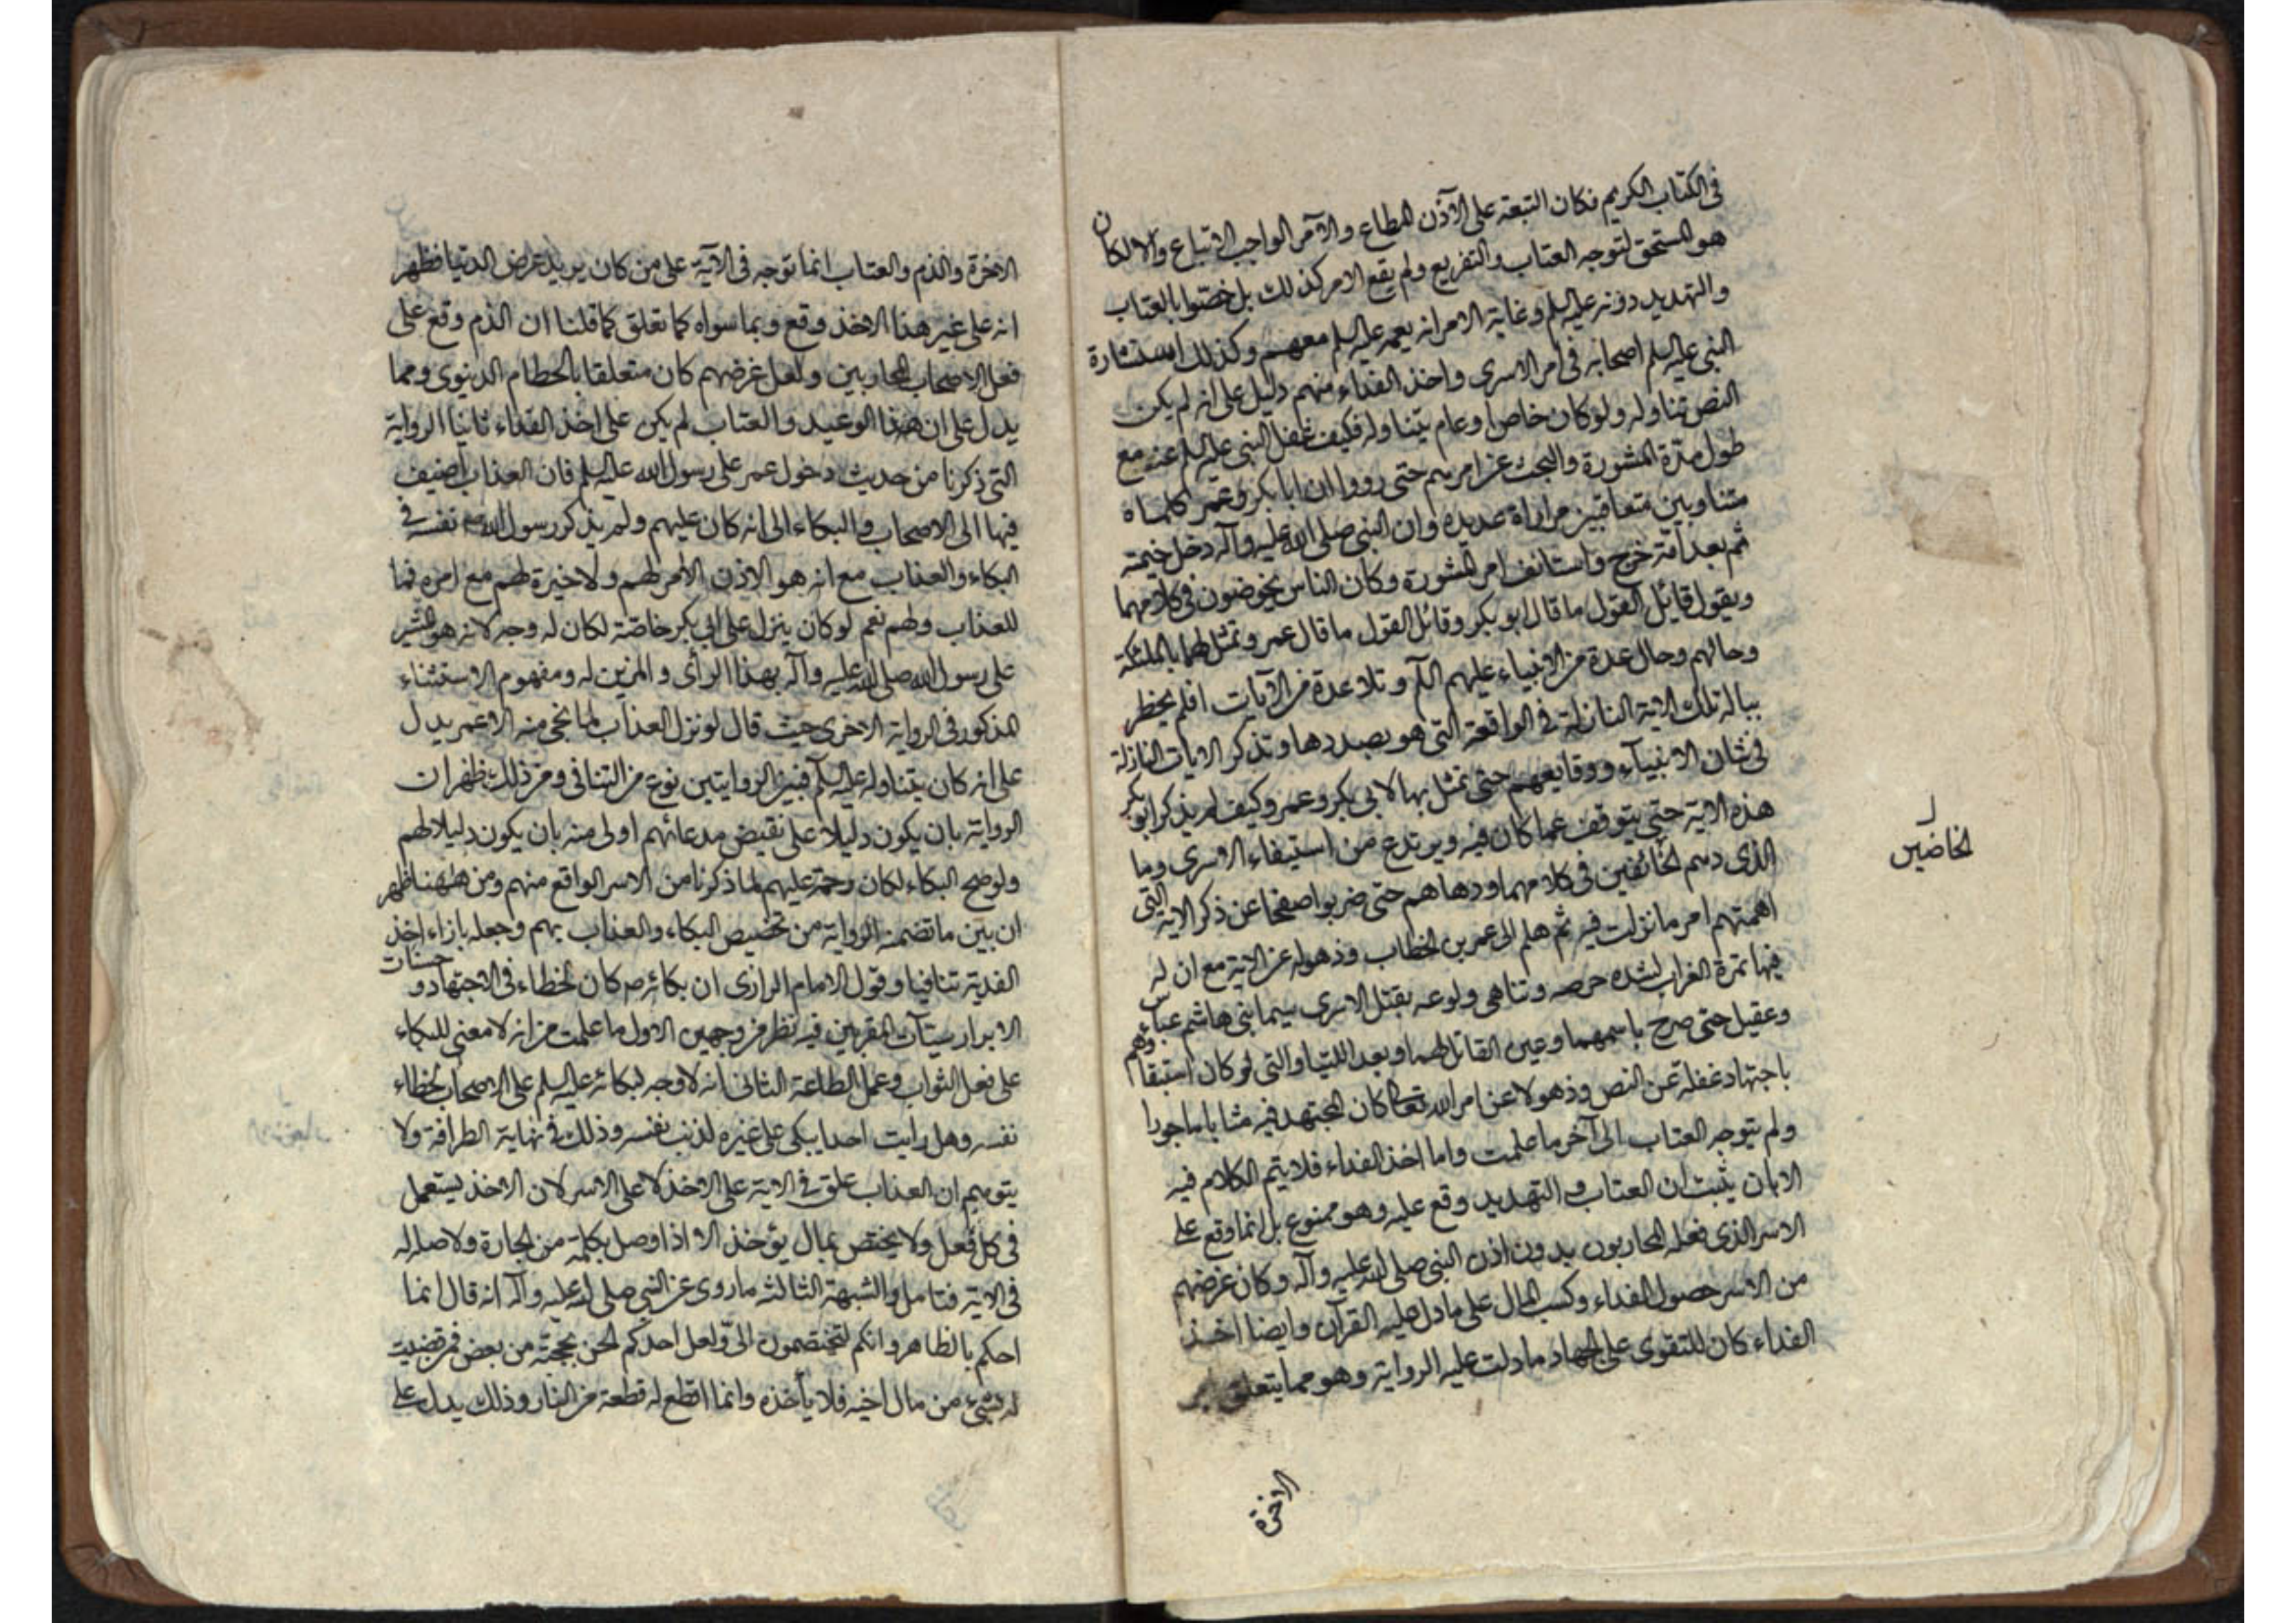 فى الكتاب الكريم فكان التبعة على الآذن المطاع والآمر الواجب الاتباع والا لكان
هو المستحق لتوجه العتاب والتقريع ولم يقع الامر كذلك بل خصوا بالعتاب
والتهديد دونه عليه السلم وغاية الامر انه يعمه عليه السلم معهم وكذلك استشارة
النبى عليه السلم اصحابه فى امر الاسرى واخذ الفداء منهم دليل على انه لم يكن
النص تناوله ولو كان خاص او عام يتناوله فكيف غفل النبى عليه السلم عنه مع
طول مدة المشورة والبحث عن امرهم حتى رووا ان ابا بكر وعمر كلماه
متناوبين متعاقبين مراراة عديدة وان النبى صلى الله عليه وآله دخل خيمته
ثم بعد آنة خرج واستانف امر المشورة وكان الناس يخوضون فى كلامهما
ويقول قائل القول ما قال ابو بكر وقائل القول ما قال عمر وتمثل لهما بالملئكة
وحالهم وحال عدة من الانبياء عليهم السلم وتلا عدة من الآيات افلم يخطر
بباله تلك الاية النازلة فى الواقعة التى هو بصددها وتذكر الايات النازلة
فى شان الانبياء ووقايعهم حتى تمثل بها لابى بكر وعمر وكيف لم يذكر ابو بكر
هذه الاية حتى يتوقف عما كان فيه ويرتدع من استبقاء الاسرى وما
الذى دهم الخائفين فى كلامهما ودهاهم حتى ضربوا صفحا عن ذكر الاية التى
اهمتهم امر ما نزلت فيه ثم هلم الى عمر بن الخطاب وذهوله عن الاية مع ان له
فيها تمرة الغراب لشدة حرصه وتناهى ولوعه بقتل الاسرى سيما بنى هاشم عباس
وعقيل حتى صرح باسمهما وعين القاتل لهما وبعد اللتيا والتى لو كان استبقاؤهم
باجتهاد غفلة عن النص وذهولا عن امر الله تعالى كان المجتهد فيه مثابا ماجورا
ولم يتوجه العتاب الى آخر ما علمت واما اخذ الفداء فلا يتم الكلام فيه
الا بان يثبت ان العتاب و التهديد وقع عليه وهو ممنوع بل انما وقع على
الاسر الذى فعله المحاربون بدون اذن النبى صلى الله عليه وآله وكان غرضهم
من الاسر حصول الفداء وكسب المال على ما دل عليه القرآن وايضا اخذ
الفداء كان للتقوى على الجهاد ما دلت عليه الرواية وهو مما يتعلق
الاخرة
ل
الخاضين
الاخرة والذم والعتاب انما توجه فى الآية على من كان يريد عرض الدنيا فظهر
انه على غير هذا الاخذ وقع وبما سواه كما تعلق كما قلنا ان الذم وقع على
فعل الاصحاب المحاربين ولعل غرضهم كان متعلقا بالحطام الدنيوى ومما
يدل على ان هذا الوعيد والعتاب لم يكن على اخذ الفداء ثانيا الرواية
التى ذكرنا من حديث دخول عمر على رسول الله عليه السلم فان العذاب اضيف
فيها الى الاصحاب و البكاء الى انه كان عليهم ولم يذكر رسول الله نفسه فى
البكاء والعذاب مع انه هو الاذن الآمر لهم ولا خيرة لهم مع امره فما
للعذاب ولهم نعم لو كان ينزل على ابى بكر خاصة لكان له وجه لانه هو المشير
على رسول الله صلى الله عليه وآله بهذا الرأى والمزين له ومفهوم الاستثناء
المذكور فى الرواية الاخرى حيث قال لو نزل العذاب لما نجى منه الا عمر يدل
على انه كان يتناوله عليه السلم فبين الروايتين نوع من التنافى ومن ذلك ظهر ان
الرواية بان يكون دليلا على نقيض مدعائهم اولى منه بان يكون دليلا لهم
ولو صح البكاء لكان رحمة عليهم لما ذكرنا من الاسر الواقع منهم ومن ههنا ظهر
ان بين ما تضمنه الرواية من تخصيص البكاء والعذاب بهم وجعله بازاء اخذ
الفدية تنافيا وقول الامام الرازى ان بكائه ص كان لخطاء فى الاجتهاد و حسنات
الابرار سيئات المقربين فيه نظر من وجهين الاول ما علمت من انه لا معنى للبكاء
على فعل الثواب وعمل الطاعة الثانى انه لا وجه لبكائه عليه السلم على الاصحاب لخطاء
نفسه وهل رايت احدا يبكى على غيره لذنب نفسه وذلك فى نهاية الطرافة ولا
يتوهم ان العذاب علق فى الاية على الاخذ لا على الاسر لان الاخذ يستعمل
فى كل فعل ولا يختص بمال يؤخذ الا اذا وصل بكلمة من الجارة ولا صلة له
فى الاية فتامل والشبهة الثالثة ما روى عن النبى صلى الله عليه وآله انه قال انما
احكم بالظاهر وانكم لتختصمون الىّ ولعل احدكم الحن بحجته من بعض فمن قضيت
له بشىء من مال اخيه فلا يأخذه وانما اقطع له قطعة من النار وذلك يدل على